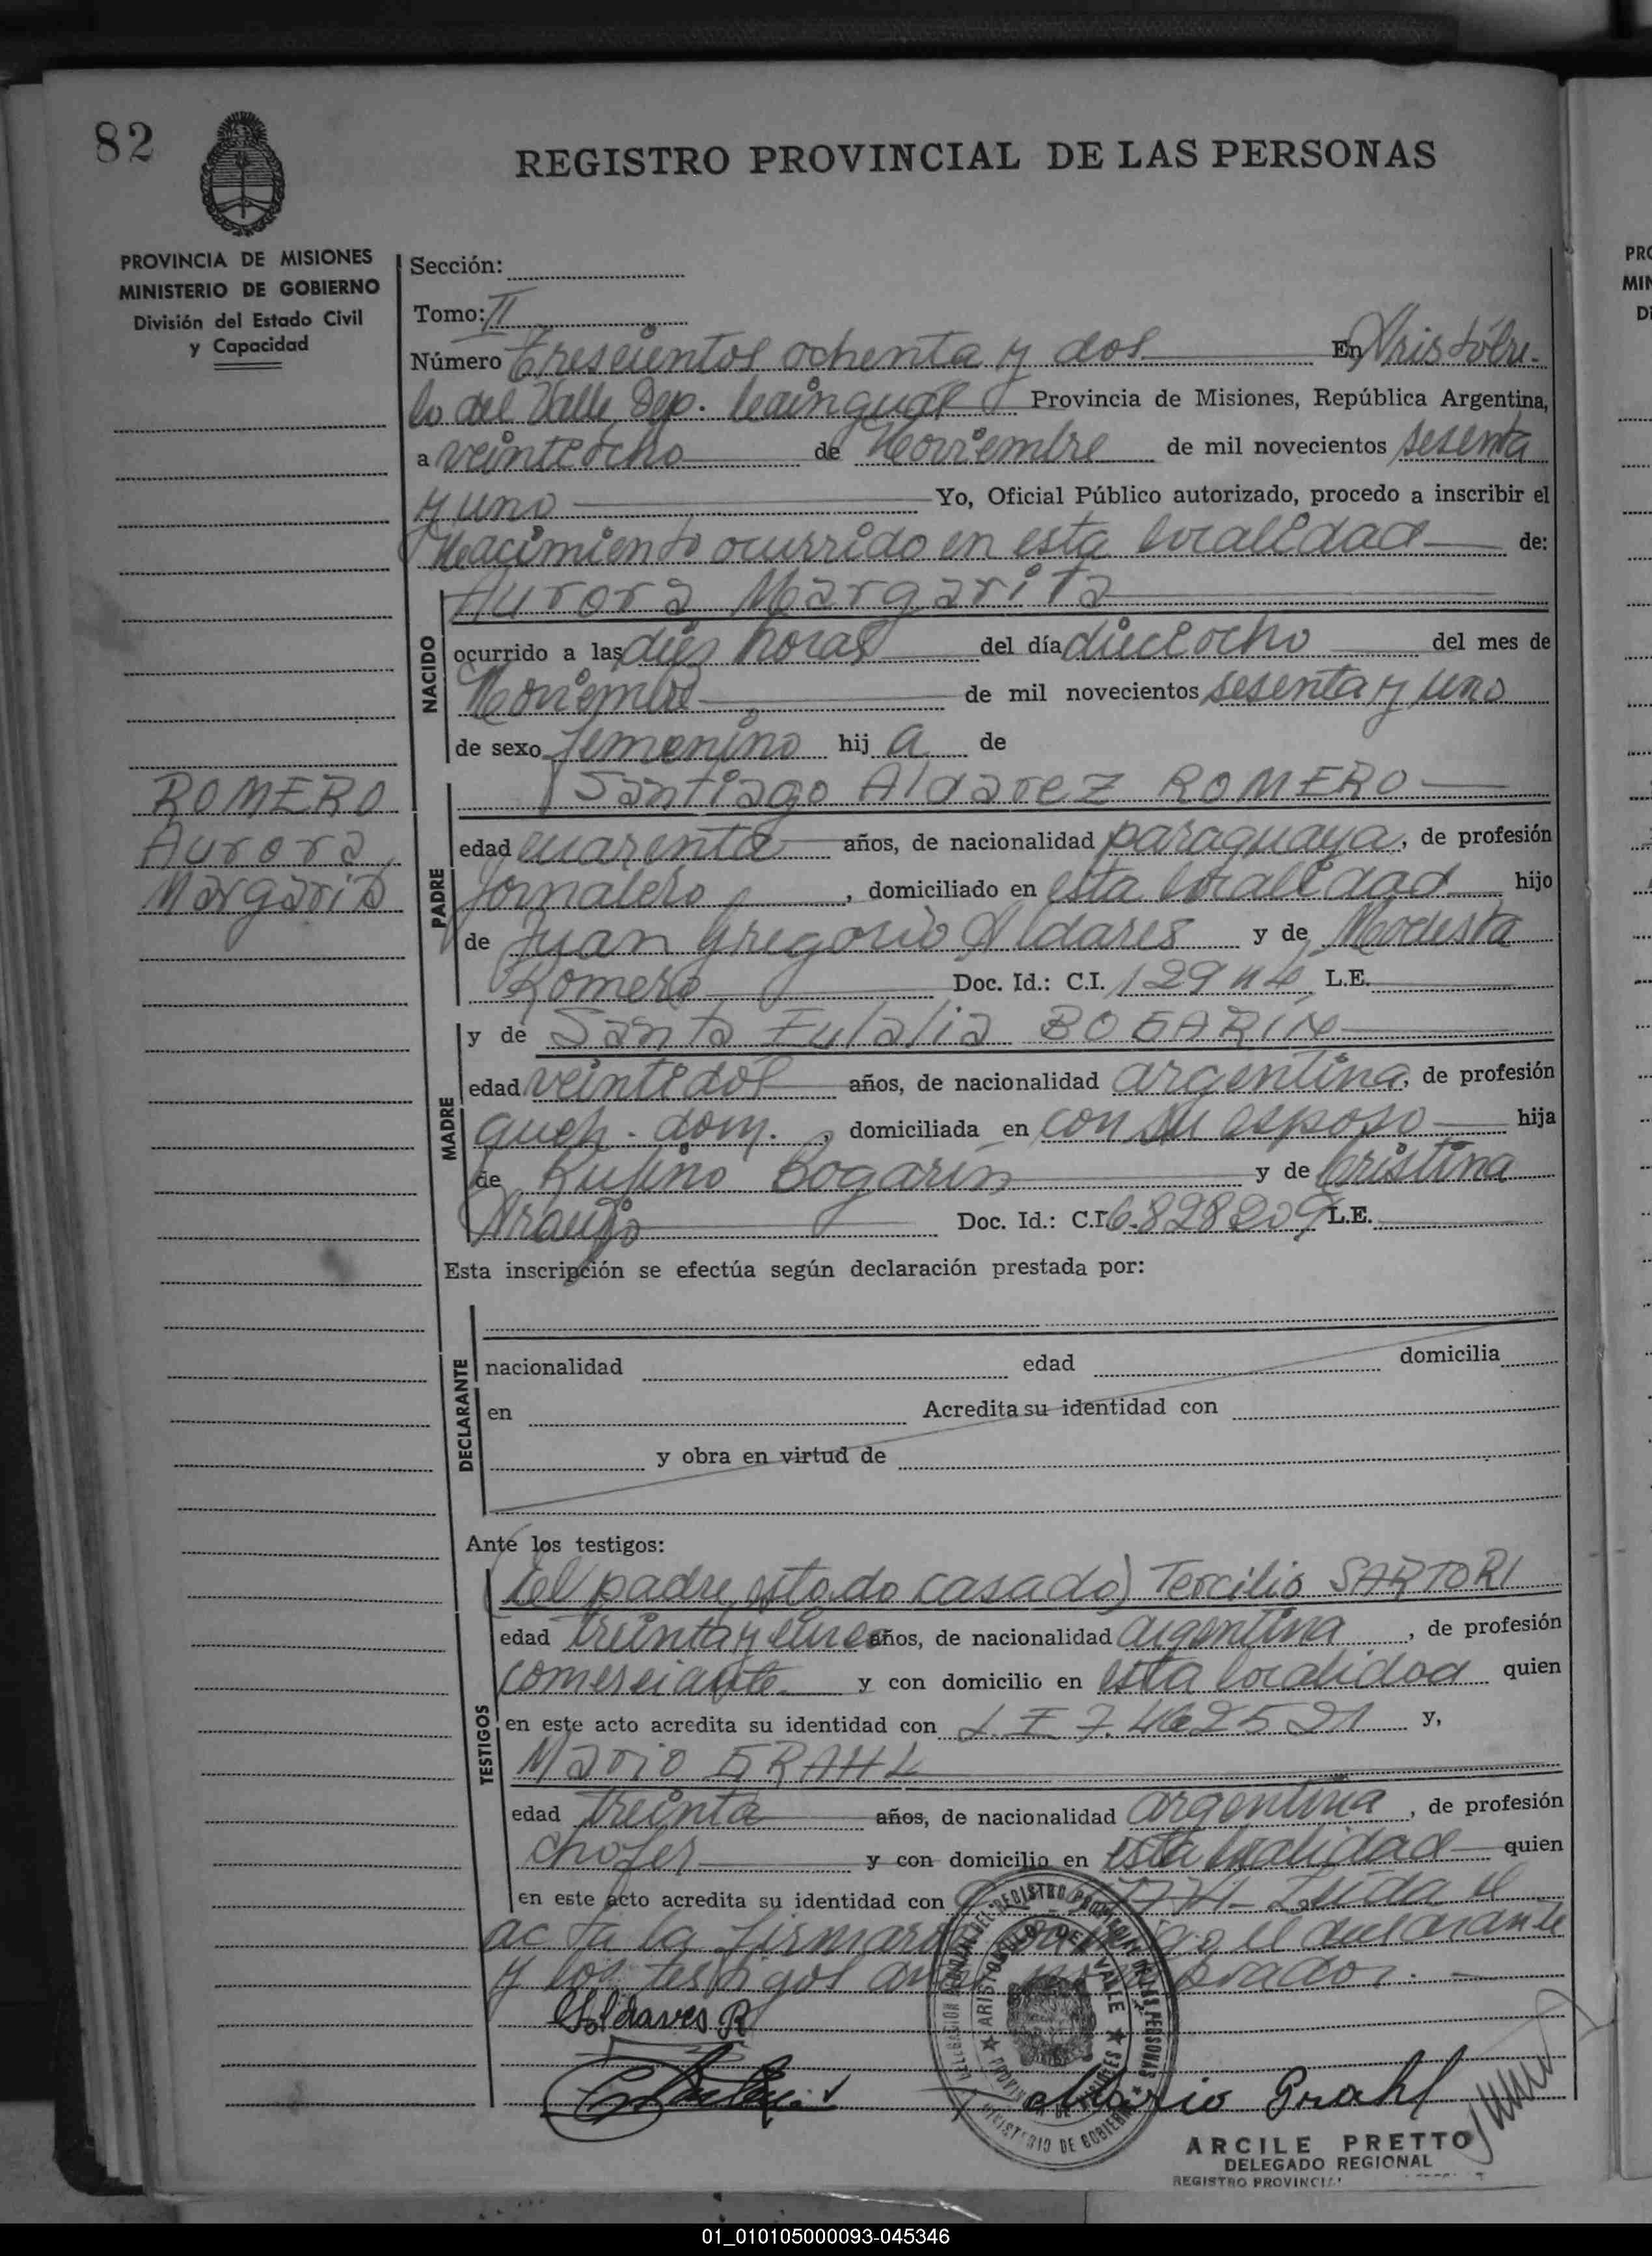 82
REGISTRO PROVINCIAL DE LAS PERSONAS
PROVINCIA DE MISIONES
MINISTERIO DE GOBIERNO
División del Estado Civil
y Capacidad
Sección:
Tomo: II
Número Trescientos ochenta y dos En Aristóbu-
lo del Valle, Dep. Cainguás Provincia de Misiones, República Argentina,
a veintiocho de Noviembre de mil novecientos sesenta
y uno Yo, Oficial Público autorizado, procedo a inscribir el
Nacimiento ocurrido en esta localidad de:
NACIDO
Aurora Margarita
ocurrido a las diez horas del día dieciocho del mes de
Noviembre de mil novecientos sesenta y uno
de sexo femenino hij a de
ROMERO
Aurora
Margarita
PADRE
Santiago Aldarez ROMERO
edad cuarenta años, de nacionalidad paraguaya, de profesión
Jornalero, domiciliado en esta localidad hijo
de Juan Gregorio Aldares y de Modesta
Romero Doc. Id.: C.I. L.E.
MADRE
y de Santa Eulalia BOGARIN
edad veintidos años, de nacionalidad argentina, de profesión
queh. dom., domiciliada en con su esposo hija
de Rufino Bogarin y de Cristina
Araujo Doc. Id.: C.I. 6.828209 L.E.
Esta inscripción se efectúa según declaración prestada por:
DECLARANTE
nacionalidad edad domicilia
en Acredita su identidad con
y obra en virtud de
Ante los testigos:
TESTIGOS
(el padre, estado casado) Tercilio SARTORI
edad treinta y cinco años, de nacionalidad argentina, de profesión
comerciante y con domicilio en esta localidad quien
en este acto acredita su identidad con L.E 7.462521 y,
Mario GRAHL
edad treinta años, de nacionalidad argentina, de profesión
chofer y con domicilio en esta localidad quien
en este acto acredita su identidad con Leida el
acta la firmaron el declarante
y los testigos
Aldaves R
Mario Grahl
ARISTOBULO DEL VALLE
MINISTERIO DE GOBIERNO
ARCILE PRETTO
DELEGADO REGIONAL
REGISTRO PROVINCIAL
PRO
MIN
Di
01_010105000093-045346